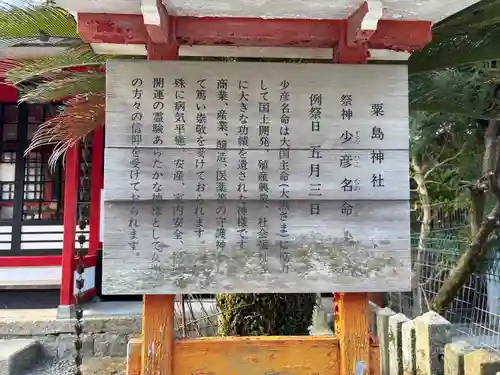 粟島神社
祭神 少彦名命
すくなひこな
例祭日 五月三日
少彦名命は大国主命(大黒さま)に助け
して国土開発、殖産興業、社会福祉
など多大な功績を遺された神様です
商業、産業、醸造、医薬等の守護神
て篤い崇敬を受けております。
殊に病気平癒、安産、室内安全、
開運の霊験あらたかな神様として女性
の方々の信仰を受けております。